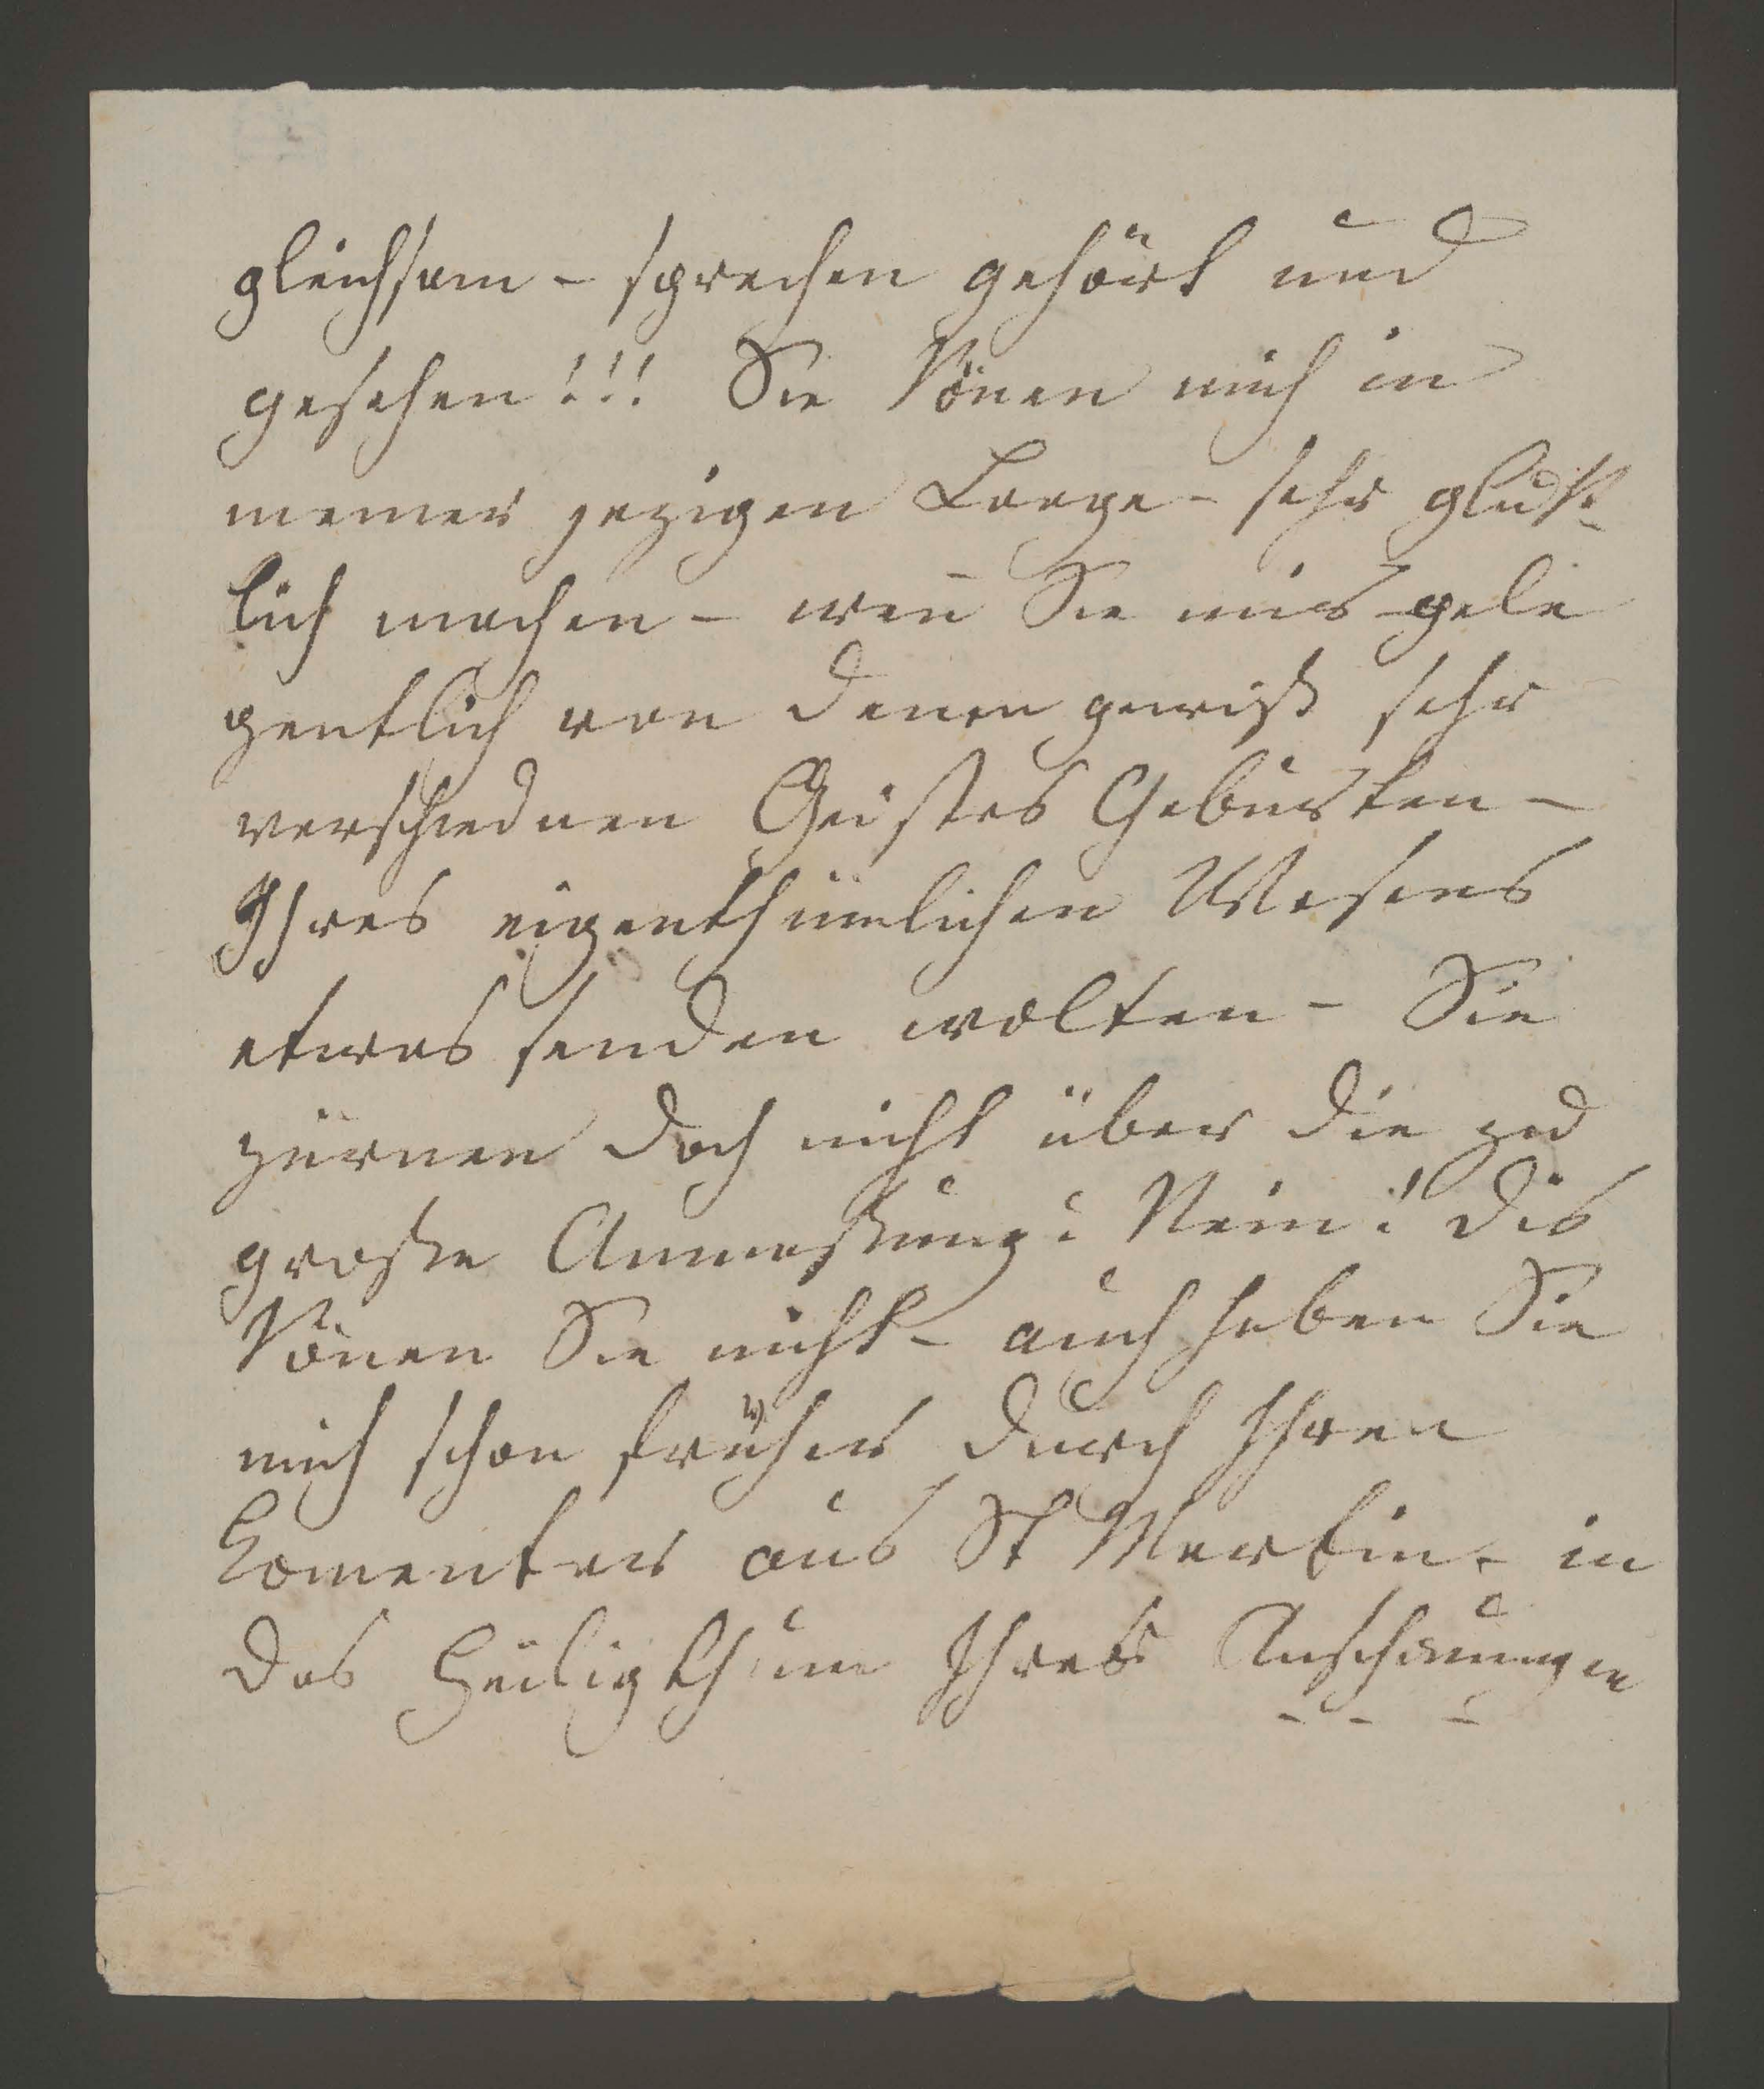 gleichsam - sprechen gehört und
gesehen!!! Sie könen mich in
meiner jezigen Laage - sehr glück-
lich machen - wen̄ Sie mir gele
gentlich von denen gewiß sehr
verschiednen Geistes Geburten -
Ihres eigenthümlichen Wesens
etwas senden wolten - Sie
zürnen doch nicht über die zu
große Anmaßung? Nein! dis
könen Sie nicht - auch haben Sie
mich schon früher durch Ihren
Comentar aus St Martin - in
das Heiligthum Ihres Anschauungen